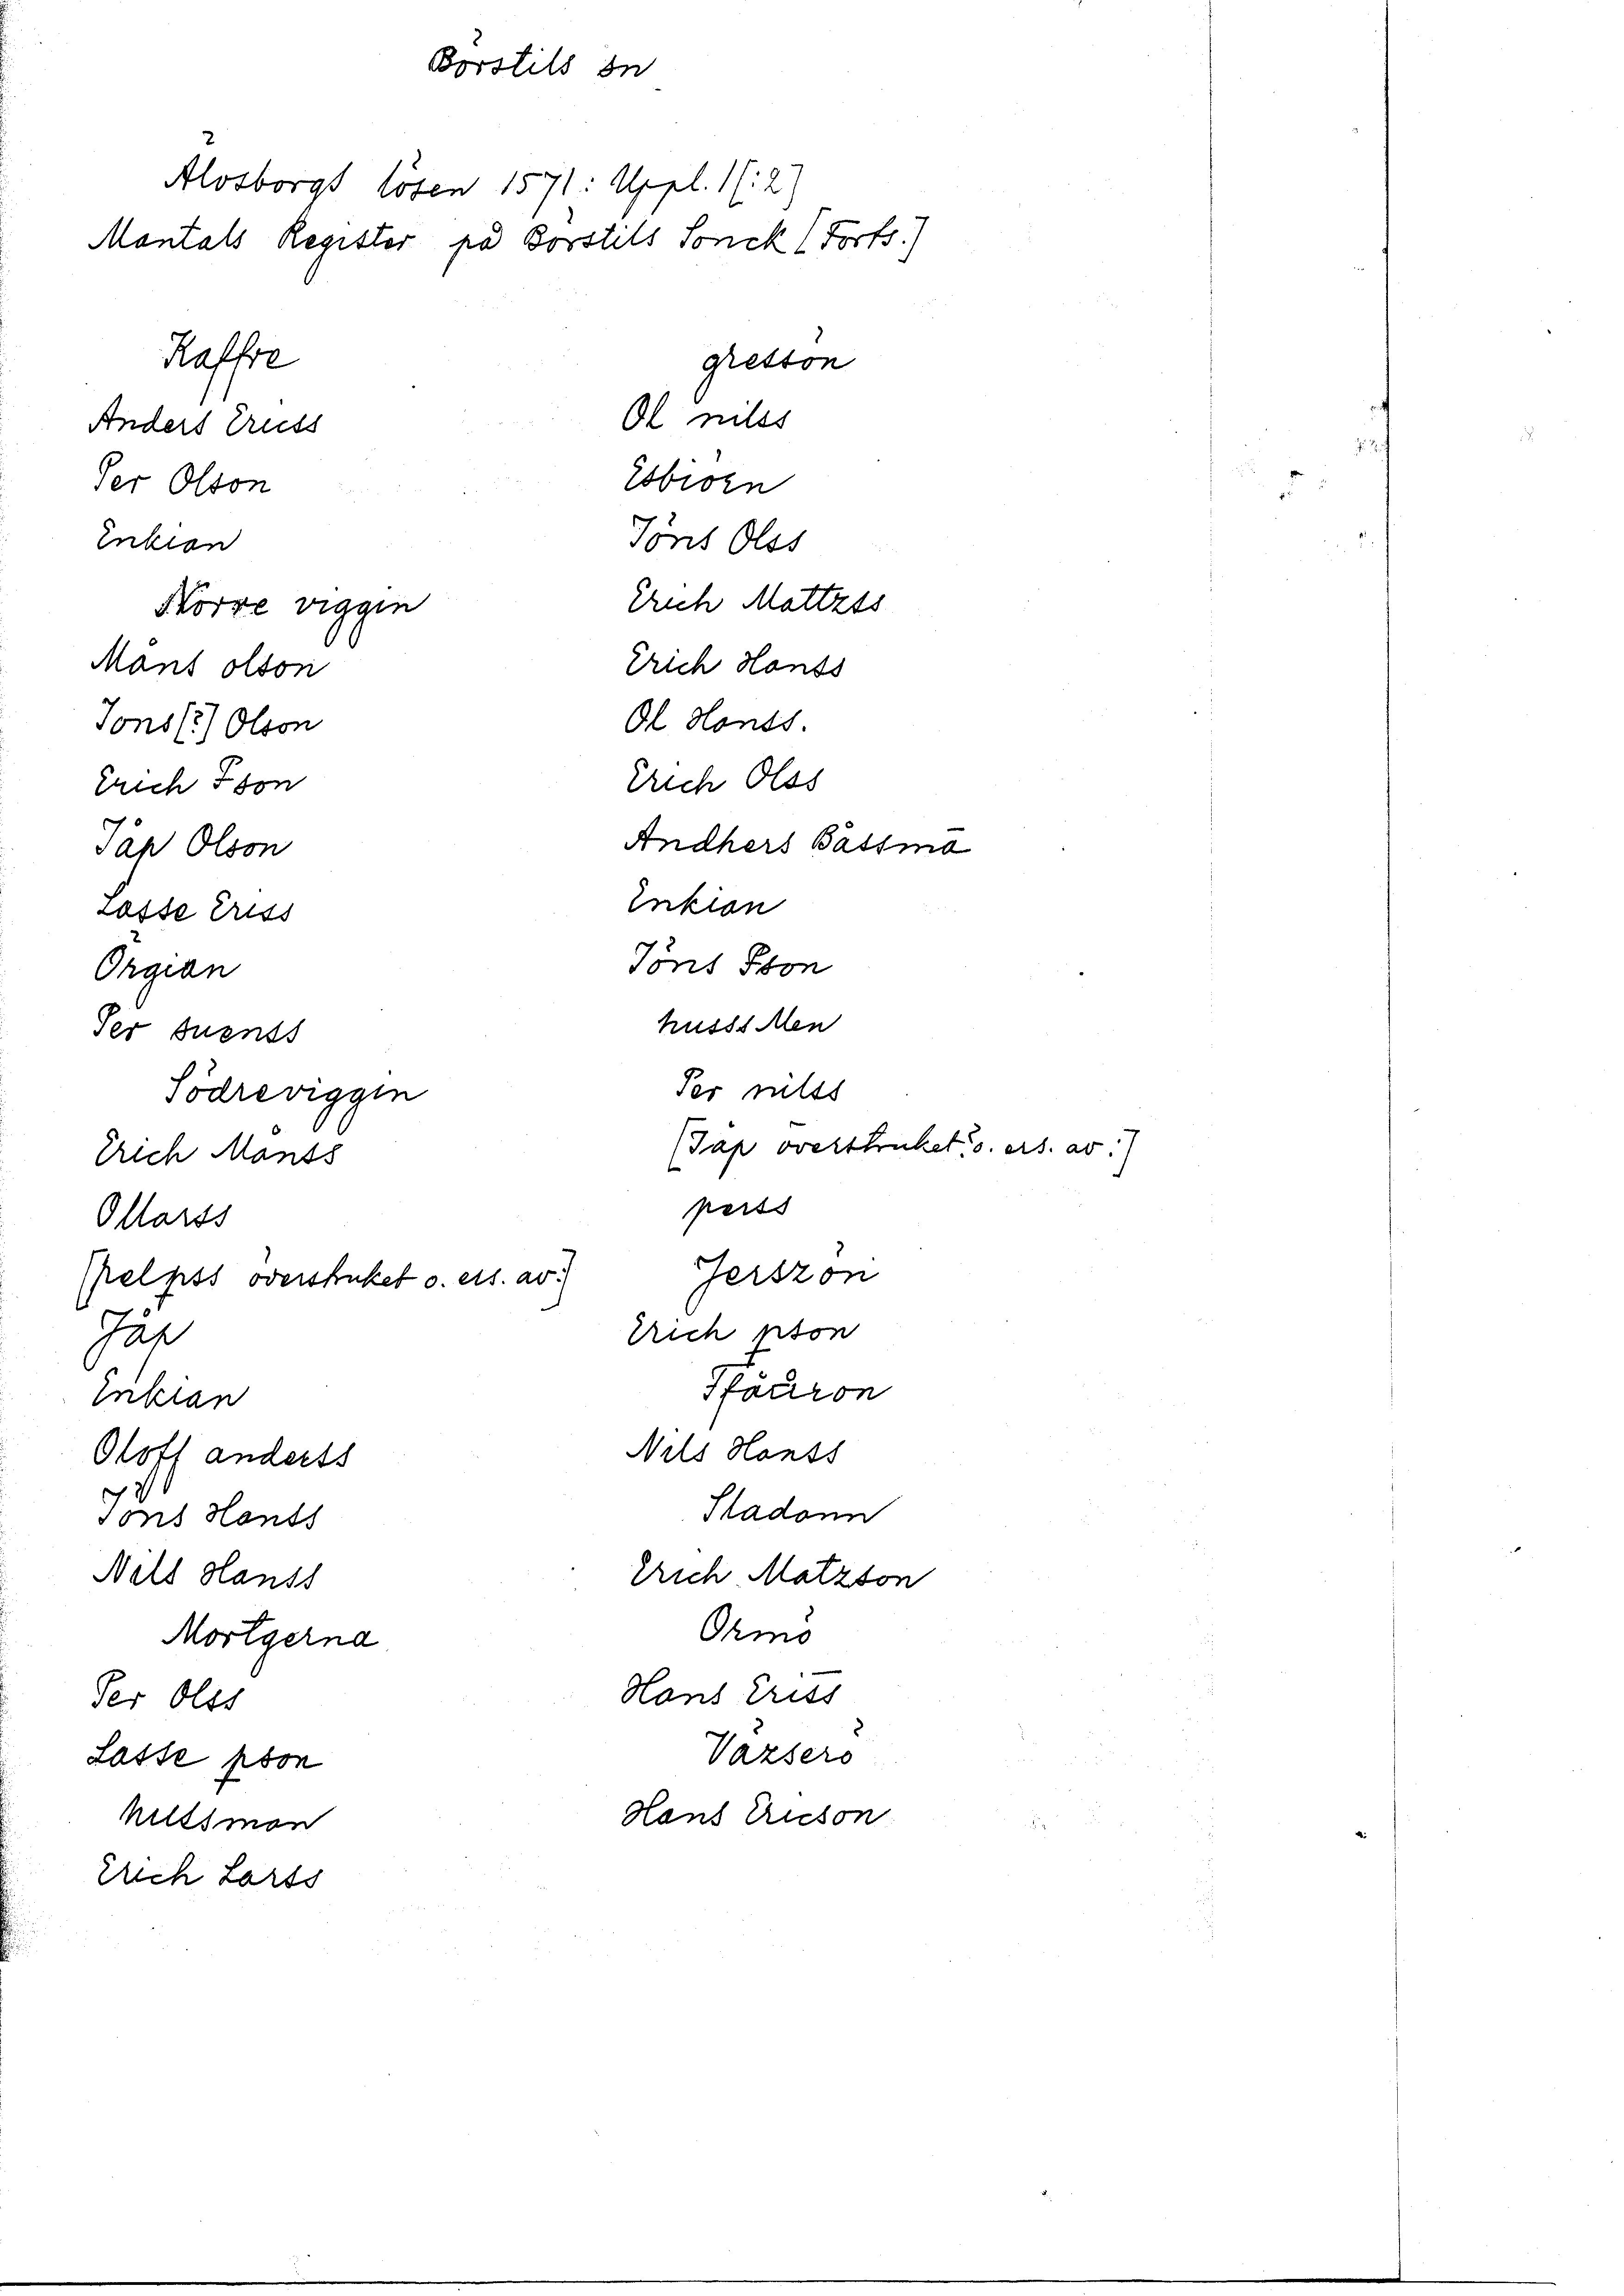 Börstils sn
Älvsborgs lösen 1571: Uppl. 1(:2)
Mantals Register på Börstils Sonck (Forts.)
Raffre
Anders Ericss
Per Olson
Enkian
Norre viggin
Måns olson
Jons(?) Olson
Erich Pson
Jäp Olson
Lasse Eriss
Örgian
Per suenss
Södreviggin
Erich Månss
Ol larss
(pelpss överstruket o. ers. av:)
Jäp
Enkian
Oloff anderss
Jöns Hanss
Nils Hanss
Mortgerna
Per Olss
Lasse pson
hussman
Erich Larss
gresson
Ol nilss
Esbiörn
Jöns Olss
Erich Mattzss
Erich Hanss
Ol Hanss.
Erich Olss
Andhers Båssmā
Enkian
Jöns Pson
husss Men
Per nilss
(Jäp överstruket o. ers. av:)
perss
Jerszön
Erich pson
Nils Hanss
Stadann
Erich Matzson
Ormö
Hans Eriss
Väzserö
Hans Ericson